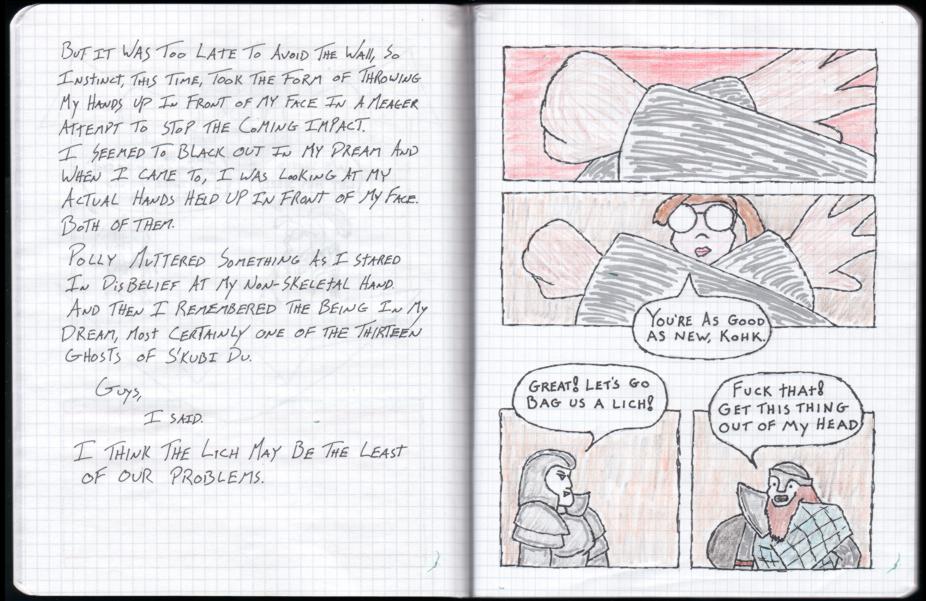 But It Was Too Late To Avoid The Wall, So
Instinct, This Time, Took The Form Of Throwing
My Hands Up In Front Of My Face In A Meager
Attempt To Stop The Coming Impact.
I Seemed To Black Out In My Dream And
When I Came To, I Was Looking At My
Actual Hands Held Up In Front Of My Face.
Both Of Them.
Polly Muttered Something As I Stared
In Disbelief At My Non-Skeletal Hand.
And Then I Remembered The Being In My
Dream, Most Certainly One Of The Thirteen
Ghosts Of S'Kubi Du.
Guys,
I Said.
I Think The Lich May Be The Least
Of Our Problems.
You're As Good
As New, Kohk.
Great! Let's Go
Bag Us A Lich!
Fuck That!
Get This Thing
Out Of My Head